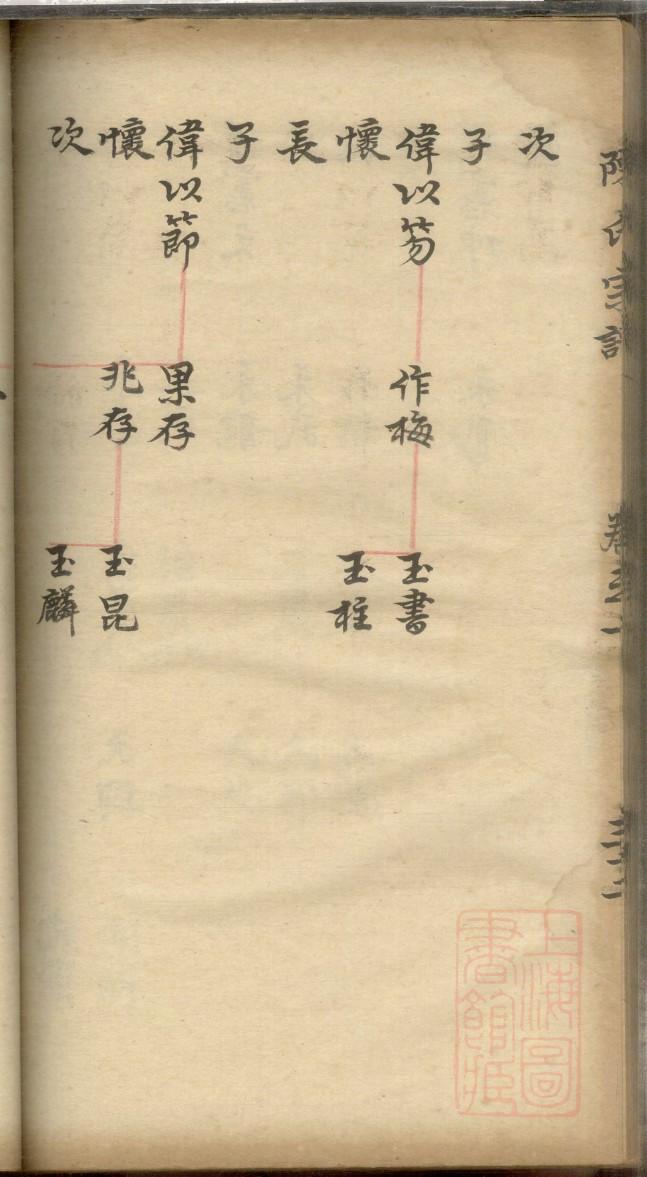 陳氏宗譜
卷之一
三二
次
子
偉以笏
懷
長
子
偉以節
懷
次
作梅
果存
兆存
玉書
玉柱
玉昆
玉麟
上海圖
書館藏